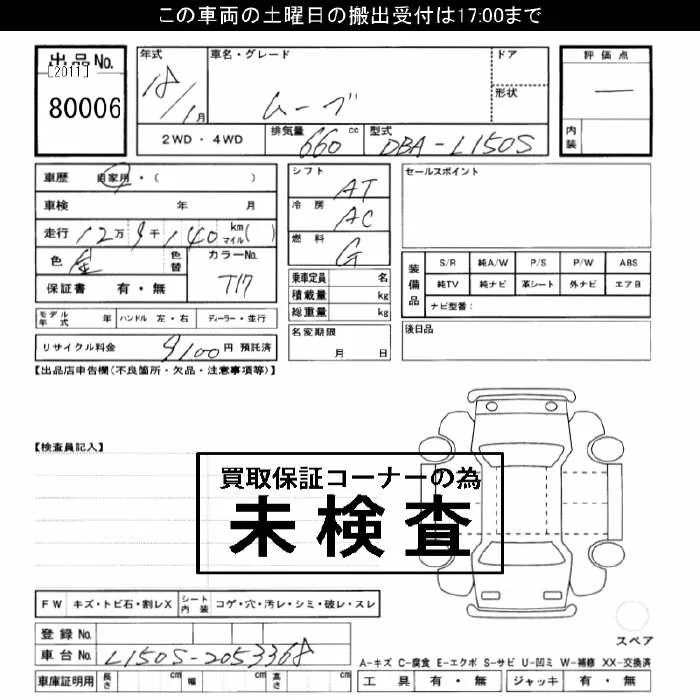 この車両の土曜日の搬出受付は17:00まで
出品No.
[2011]
80006
年式
18/1月
車名・グレード
ムーブ
ドア
形状
評価点
―
内装
2WD・4WD
排気量 660 cc
型式 DBA-L150S
車歴 自家用・( )
車検 年 月
走行 12万9千140 km マイル( )
色 金 色替
カラーNo. T17
保証書 有・無
シフト AT
冷房 AC
燃料 G
乗車定員 名
積載量 kg
総重量 kg
セールスポイント
装備品
S/R 純A/W P/S P/W ABS
純TV 純ナビ 革シート 外ナビ エアB
ナビ型番:
モデル年式 年 ハンドル 左・右 ディーラー・並行
名変期限 月 日
後日品
リサイクル料金 9100円 預託済
【出品店申告欄(不良箇所・欠品・注意事項等)】
【検査員記入】
買取保証コーナーの為
未検査
FW キズ・トビ石・割レX シート内装 コゲ・穴・汚レ・シミ・破レ・スレ
登録No.
車台No. L150S-2053368
車庫証明用 長さ cm 幅 cm 高さ cm
スペア
A-キズ C-腐食 E-エクボ S-サビ U-凹ミ W-補修 XX-交換済
工具 有・無 ジャッキ 有・無